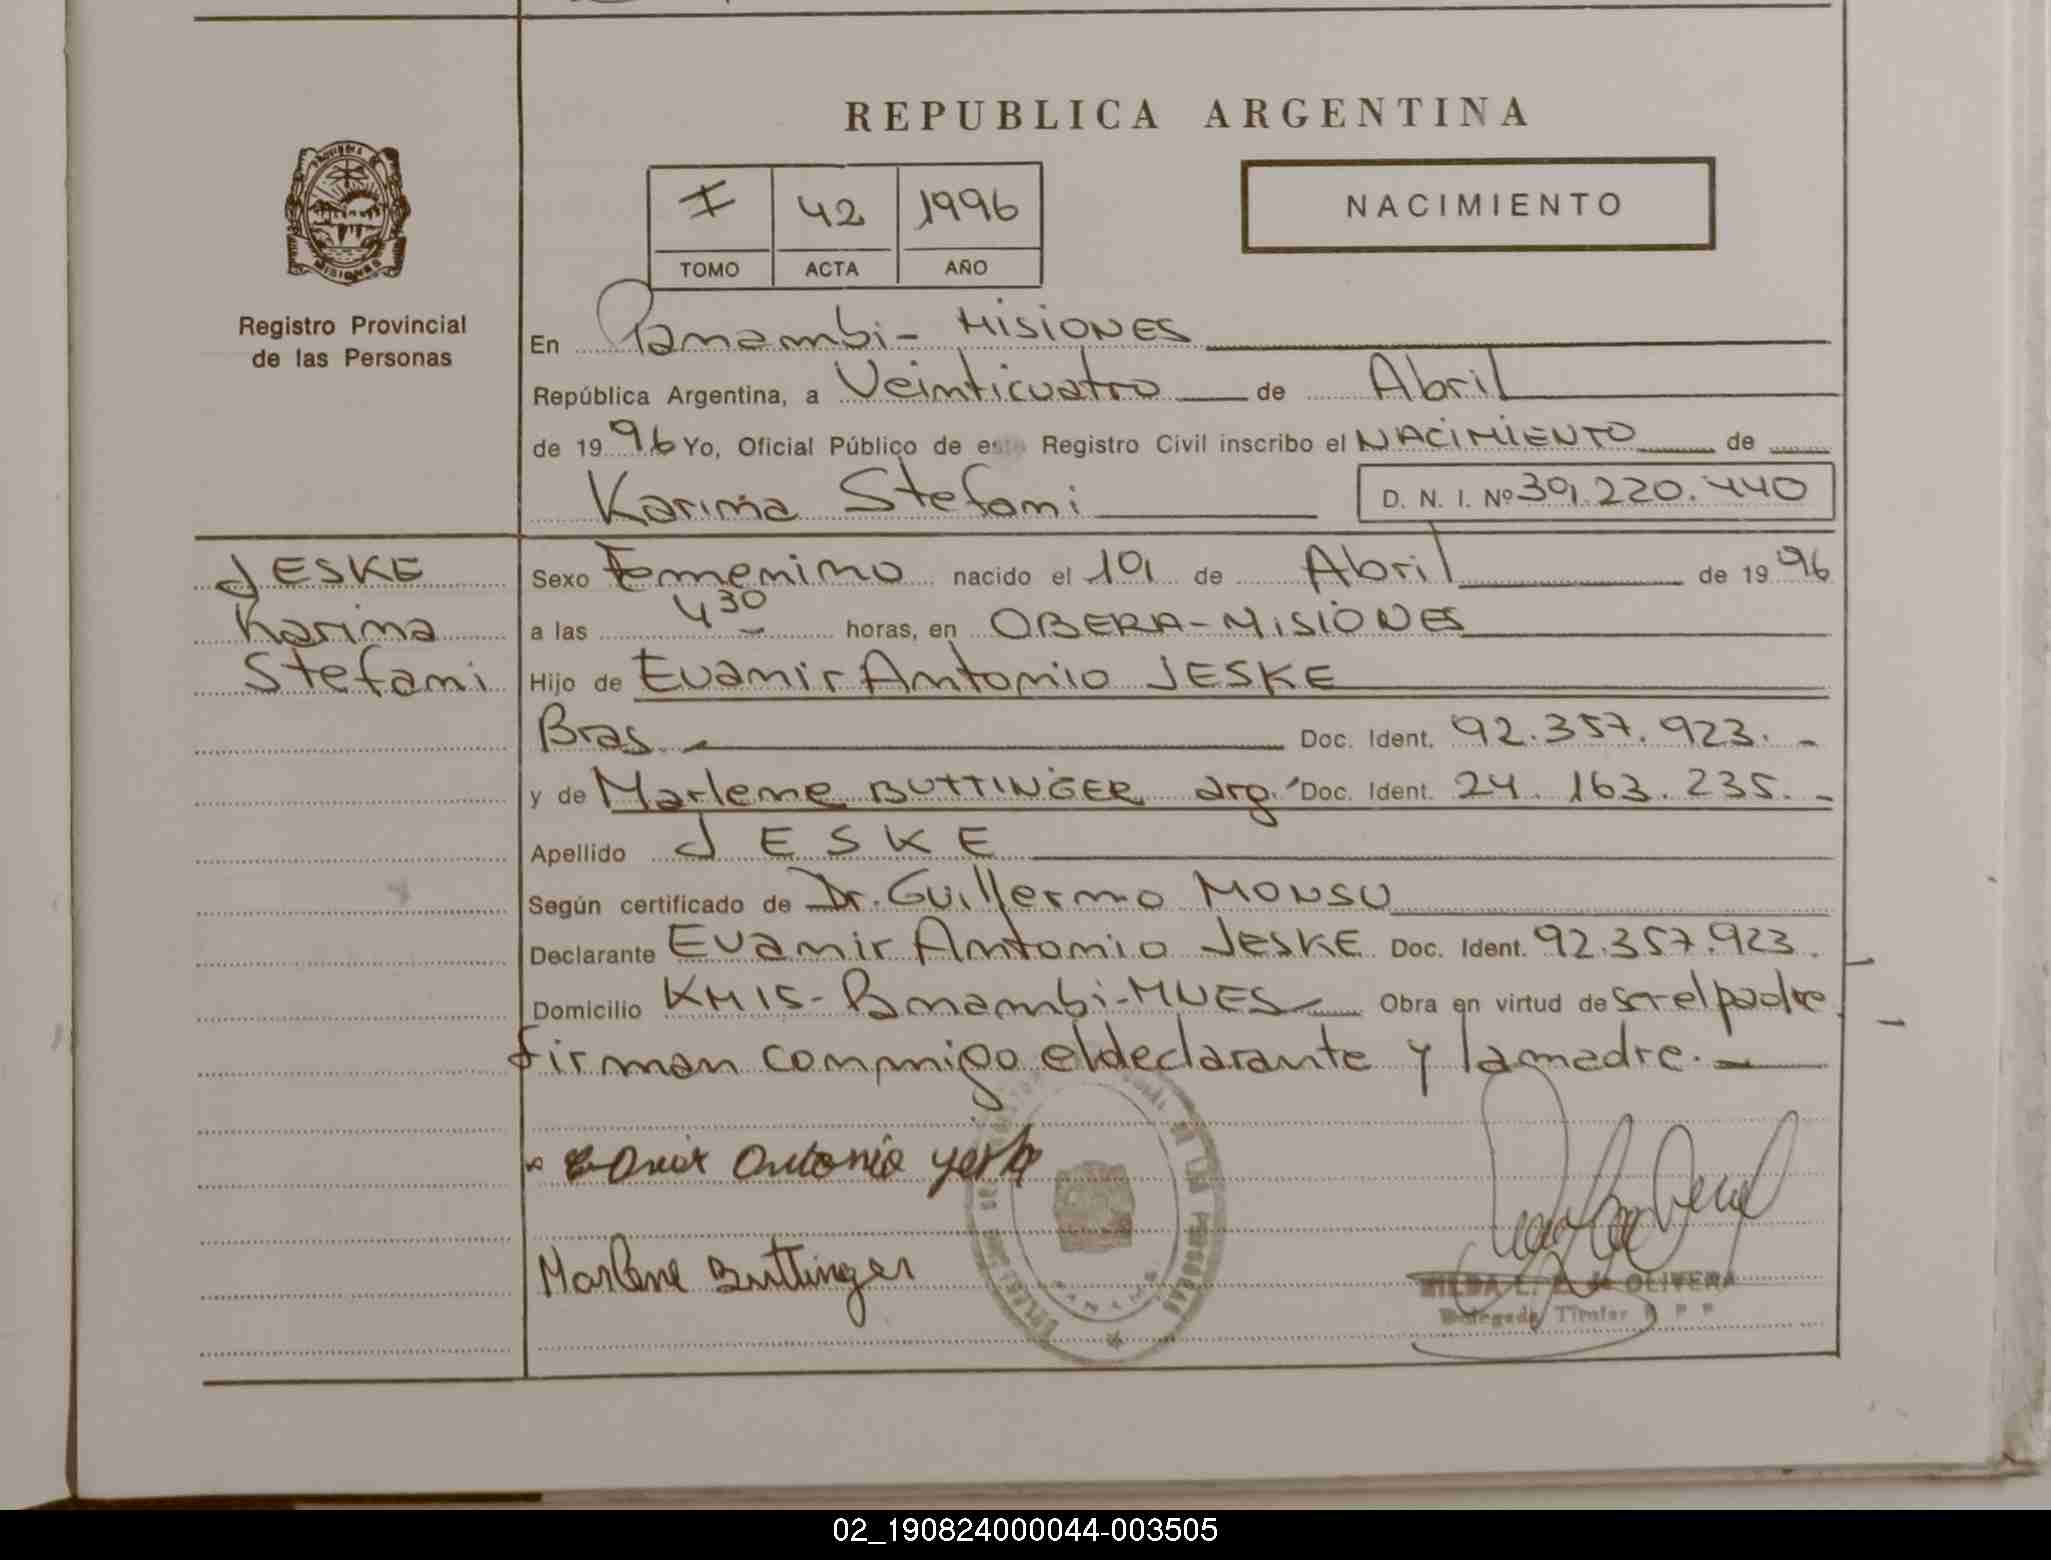 REPUBLICA ARGENTINA
I 42 1996
TOMO ACTA AÑO
NACIMIENTO
MISIONES
Registro Provincial
de las Personas
En Panambi - MISIONES
República Argentina, a Veinticuatro de Abril
de 1996 Yo, Oficial Público de este Registro Civil inscribo el NACIMIENTO de
Karina Stefani D. N. I. Nº 39.220.440
JESKE
Karina
Stefani
Sexo Femenino nacido el 19 de Abril de 1996
a las 4 30 horas, en OBERA - MISIONES
Hijo de Evanir Antonio JESKE
Bras. Doc. Ident. 92.357.923. -
y de Marlene BUTTINGER arg. Doc. Ident. 24.163.235. -
Apellido JESKE
Según certificado de Dr. Guillermo MONSU
Declarante Evanir Antonio JESKE Doc. Ident. 92.357.923.
Domicilio KM 15 - Panambi - MNES Obra en virtud de ser el padre
firman conmigo el declarante y la madre. -
Antonio
Marlene Buttinger
DE LAS PERSONAS
HILDA L. de OLIVERA
Delegada Titular R P P
02_190824000044-003505